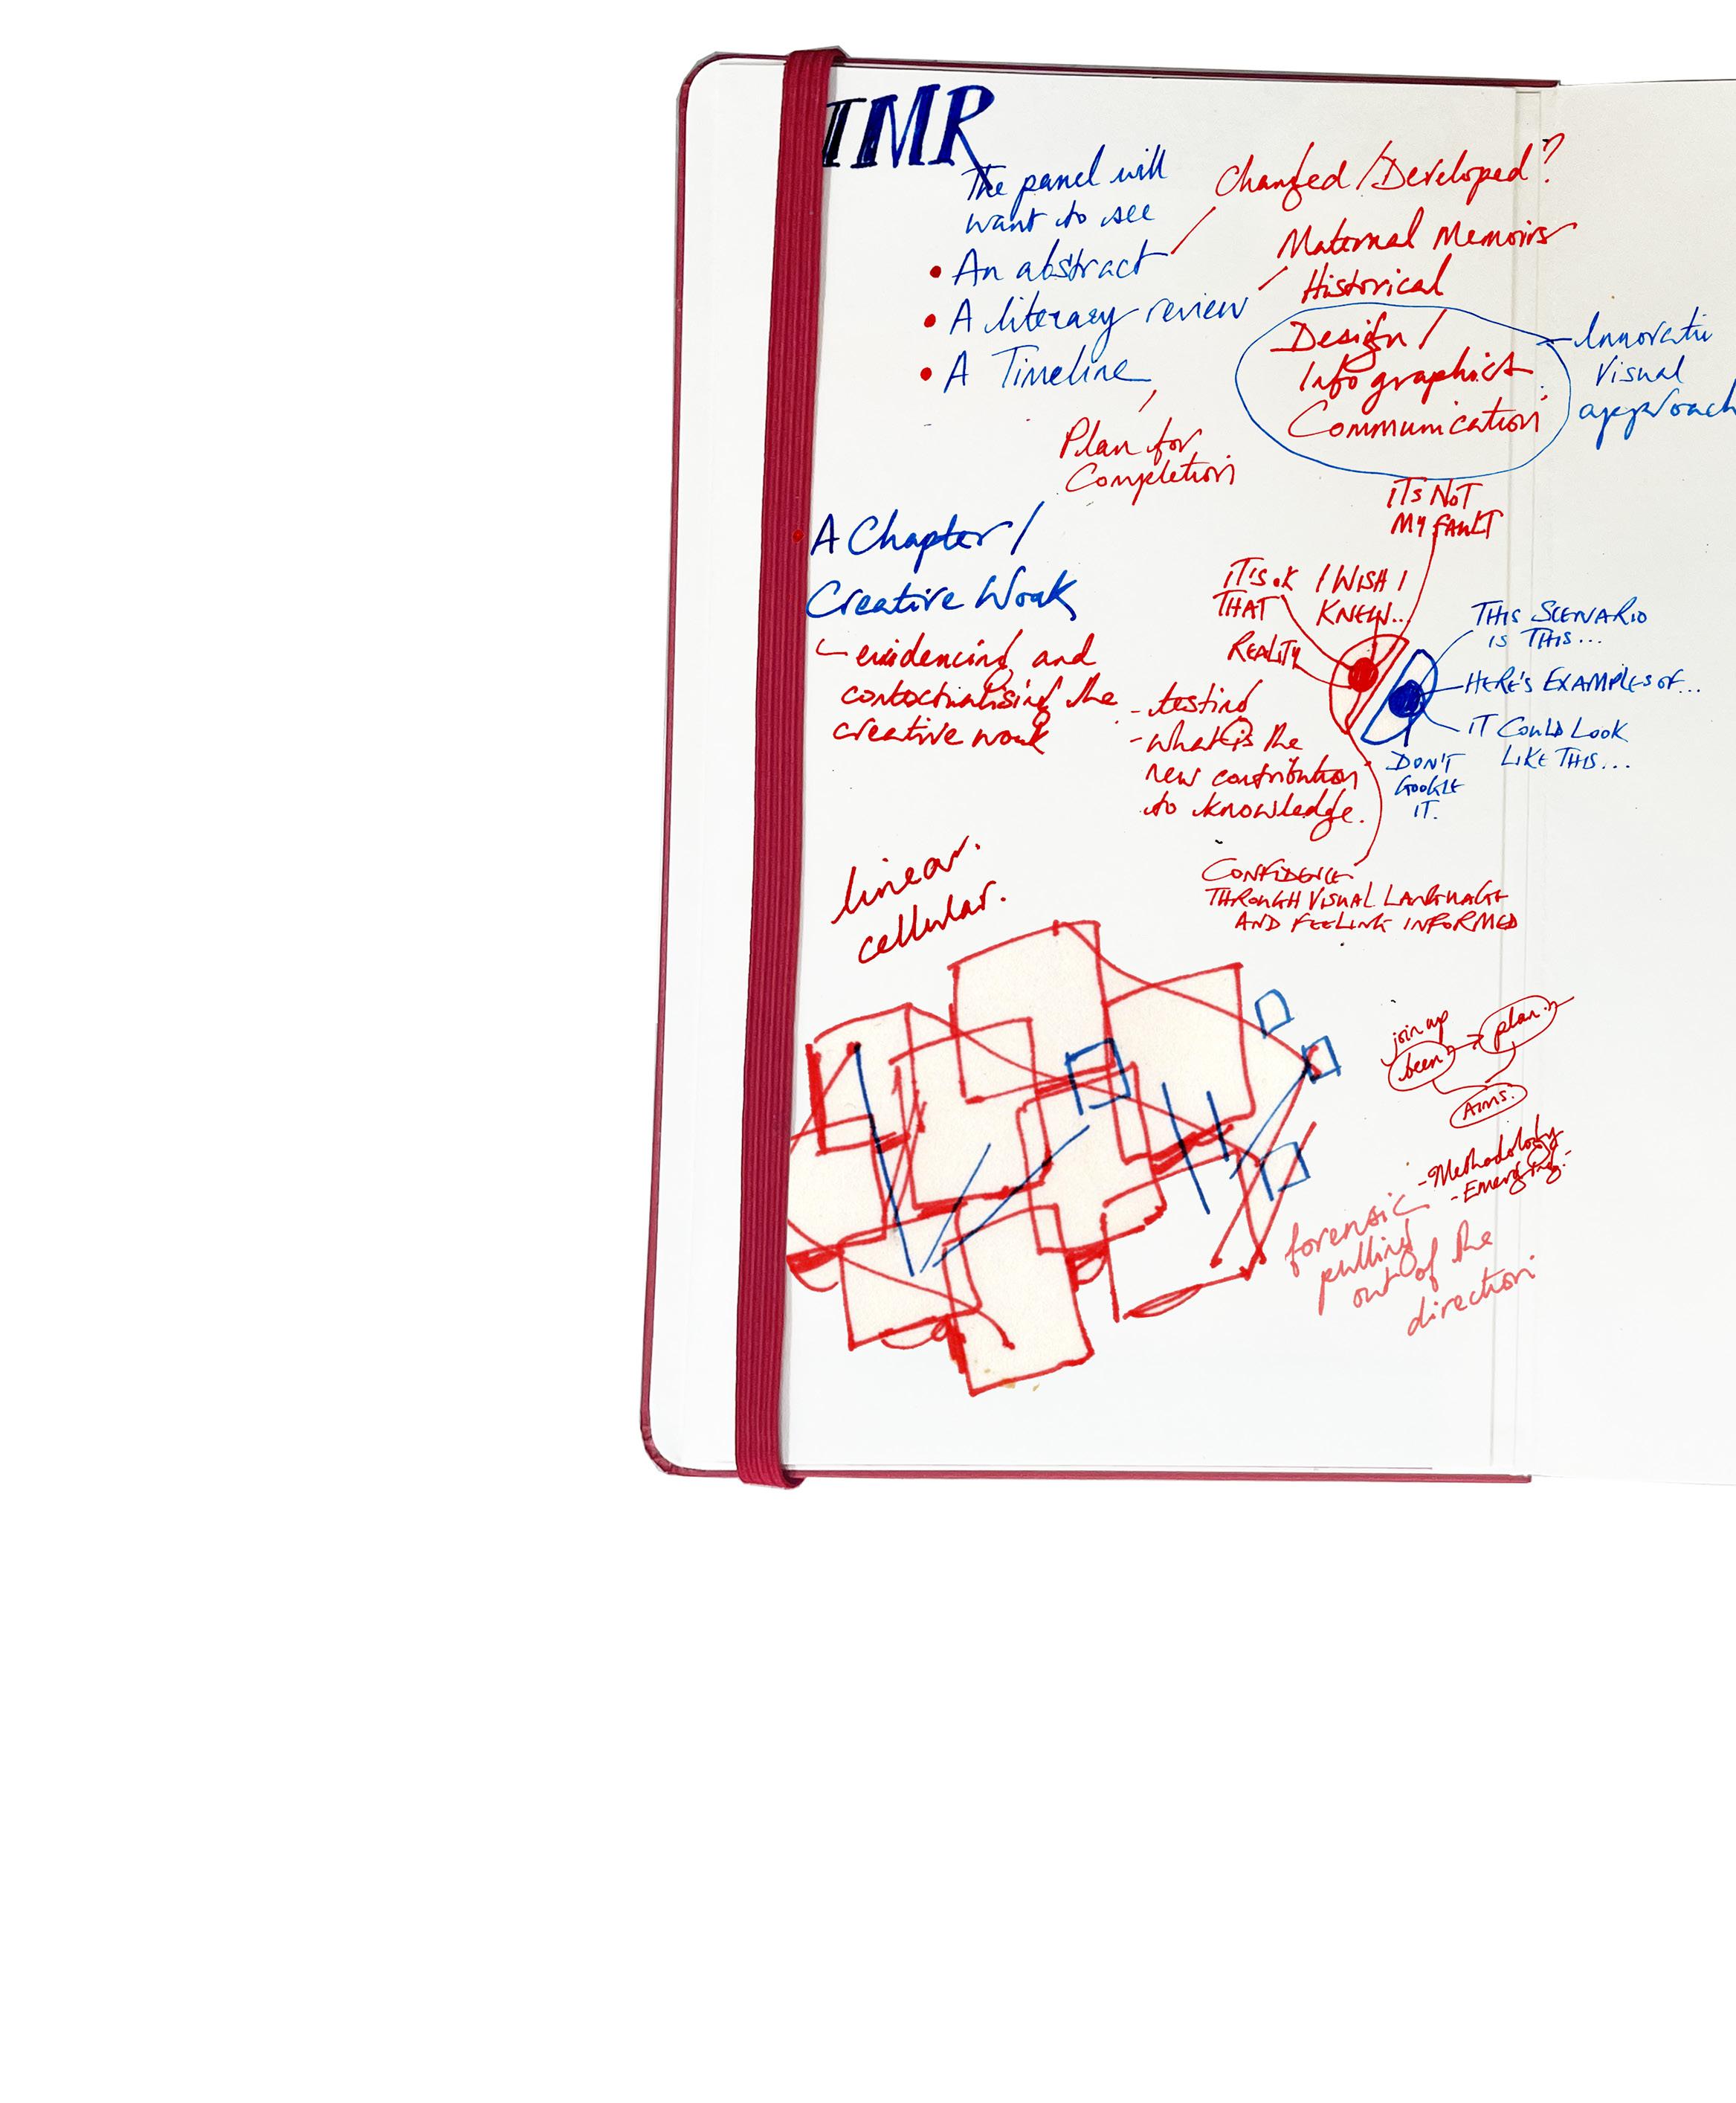 IMR
The panel will
want to see
Changed/Developed?
• An abstract
Maternal Memoirs
Historical
• A literary review
• A Timeline
Design/
Infographics
Communication
Visual
approach
Plan for
Completion
ITS NOT
MY FAULT
• A Chapter/
Creative Work
IT'S OK
THAT
I WISH I
KNEW...
REALITY
THIS SCENARIO
IS THIS...
HERE'S EXAMPLES OF...
IT COULD LOOK
LIKE THIS...
DON'T
GOOGLE
IT.
evidencing and
contextualising the
creative work
- testing
- what is the
new contribution
to knowledge.
CONFIDENCE
THROUGH VISUAL LANGUAGE
AND FEELING INFORMED
linear.
cellular.
join up
been
plan
Aims.
- Methodology
- Emerging.
forensic
pulling
out of the
direction